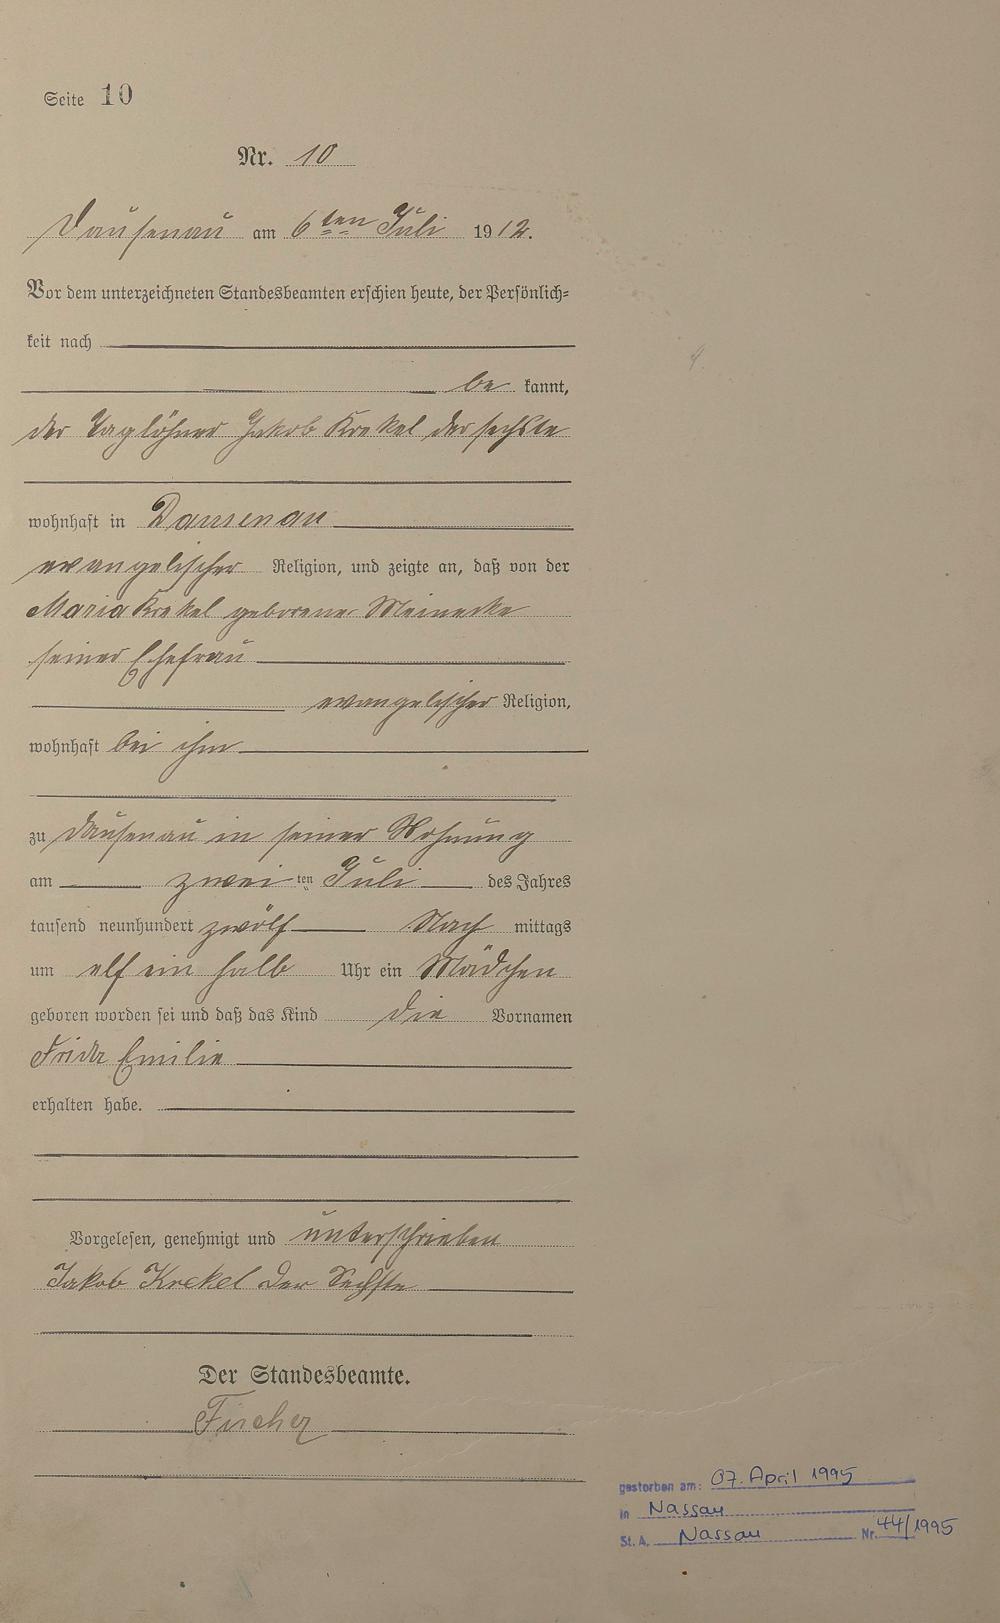 Seite 10
Nr. 10
Dausenau am 6ten Juli 1912.
Vor dem unterzeichneten Standesbeamten erschien heute, der Persönlich=
keit nach
be kannt,
der Taglöhner Jakob Krekel der sechste
wohnhaft in Dausenau
evangelischer Religion, und zeigte an, daß von der
Maria Krekel geborene Meinecke
seiner Ehefrau
evangelischer Religion,
wohnhaft bei ihm
zu Dausenau in seiner Wohnung
am zwei ten Juli des Jahres
tausend neunhundert zwölf Nach mittags
um elf ein halb Uhr ein Mädchen
geboren worden sei und daß das Kind die Vornamen
Frida Emilie
erhalten habe.
Vorgelesen, genehmigt und unterschrieben
Jakob Krekel der Sechste
Der Standesbeamte.
Fischer
gestorben am: 07. April 1995
in Nassau
St. A. Nassau Nr. 44/1995